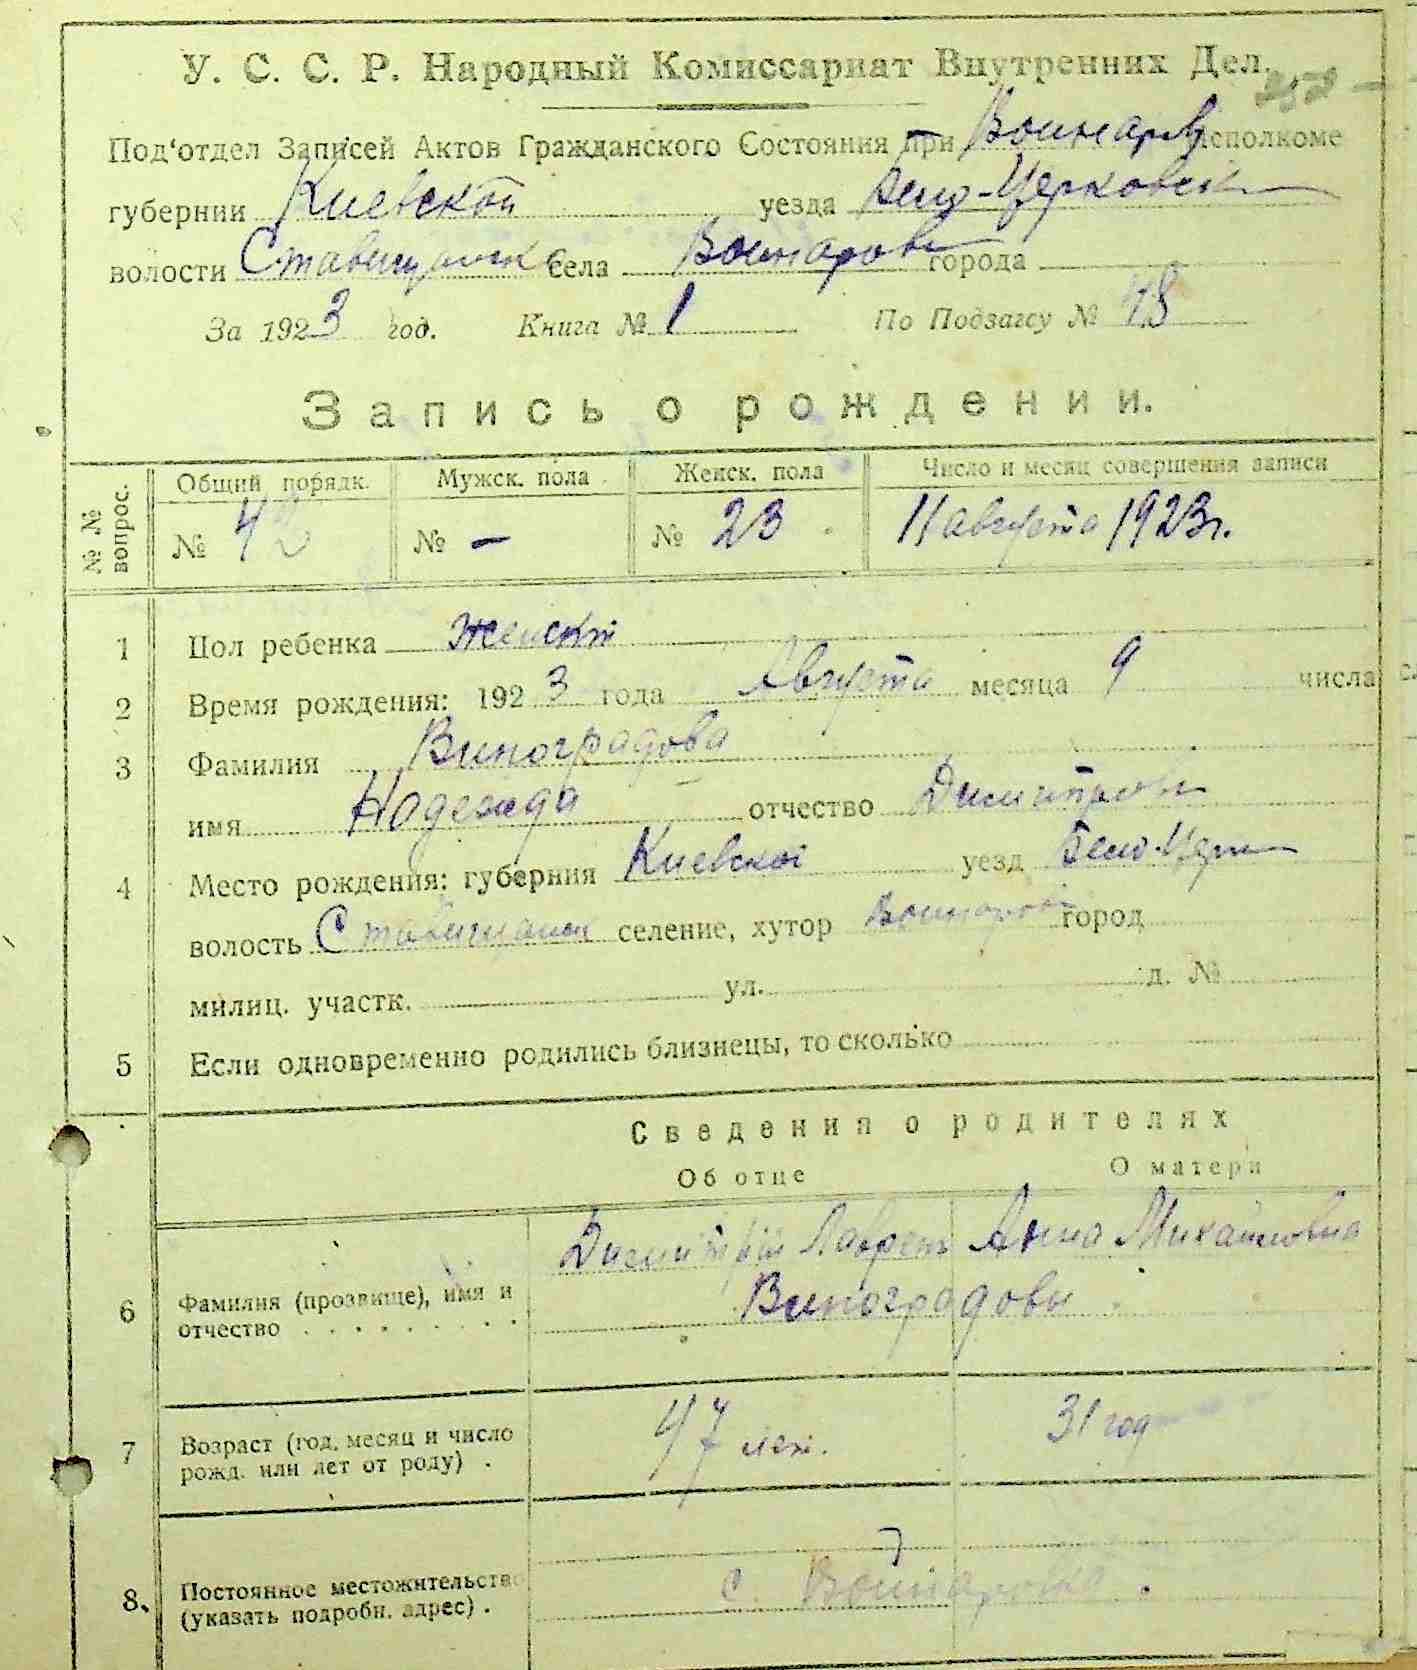 У. С. С. Р. Народный Комиссариат Внутренних Дел.
Под‘отдел Записей Актов Гражданского Состояния при Воинаров исполкоме
губернии Киевской уезда Бело-Церковск
волости Ставищанск села Воинаровк города
За 1923 год. Книга № 1 По Подзагсу № 48
Запись о рождении.
№ № вопрос. Общий порядк. Мужск. пола Женск. пола Число и месяц совершения записи
№ 42 № – № 23 11 августа 1923 г.
1 Пол ребенка женский
2 Время рождения: 1923 года Августа месяца 9 числа
3 Фамилия Виноградова
имя Надежда отчество Димитров
4 Место рождения: губерния Киевской уезд Бело-Церк
волость Ставищанск селение, хутор Воинаровк город
милиц. участк. ул. д. №
5 Если одновременно родились близнецы, то сколько
Сведения о родителях
Об отце О матери
6 Фамилия (прозвище), имя и отчество Димитрий Лаврент Анна Михайловна
Виноградовы
7 Возраст (год, месяц и число рожд. или лет от роду) . 47 лет. 31 год
8. Постоянное местожительство (указать подробн. адрес) . с. Войнаровка.